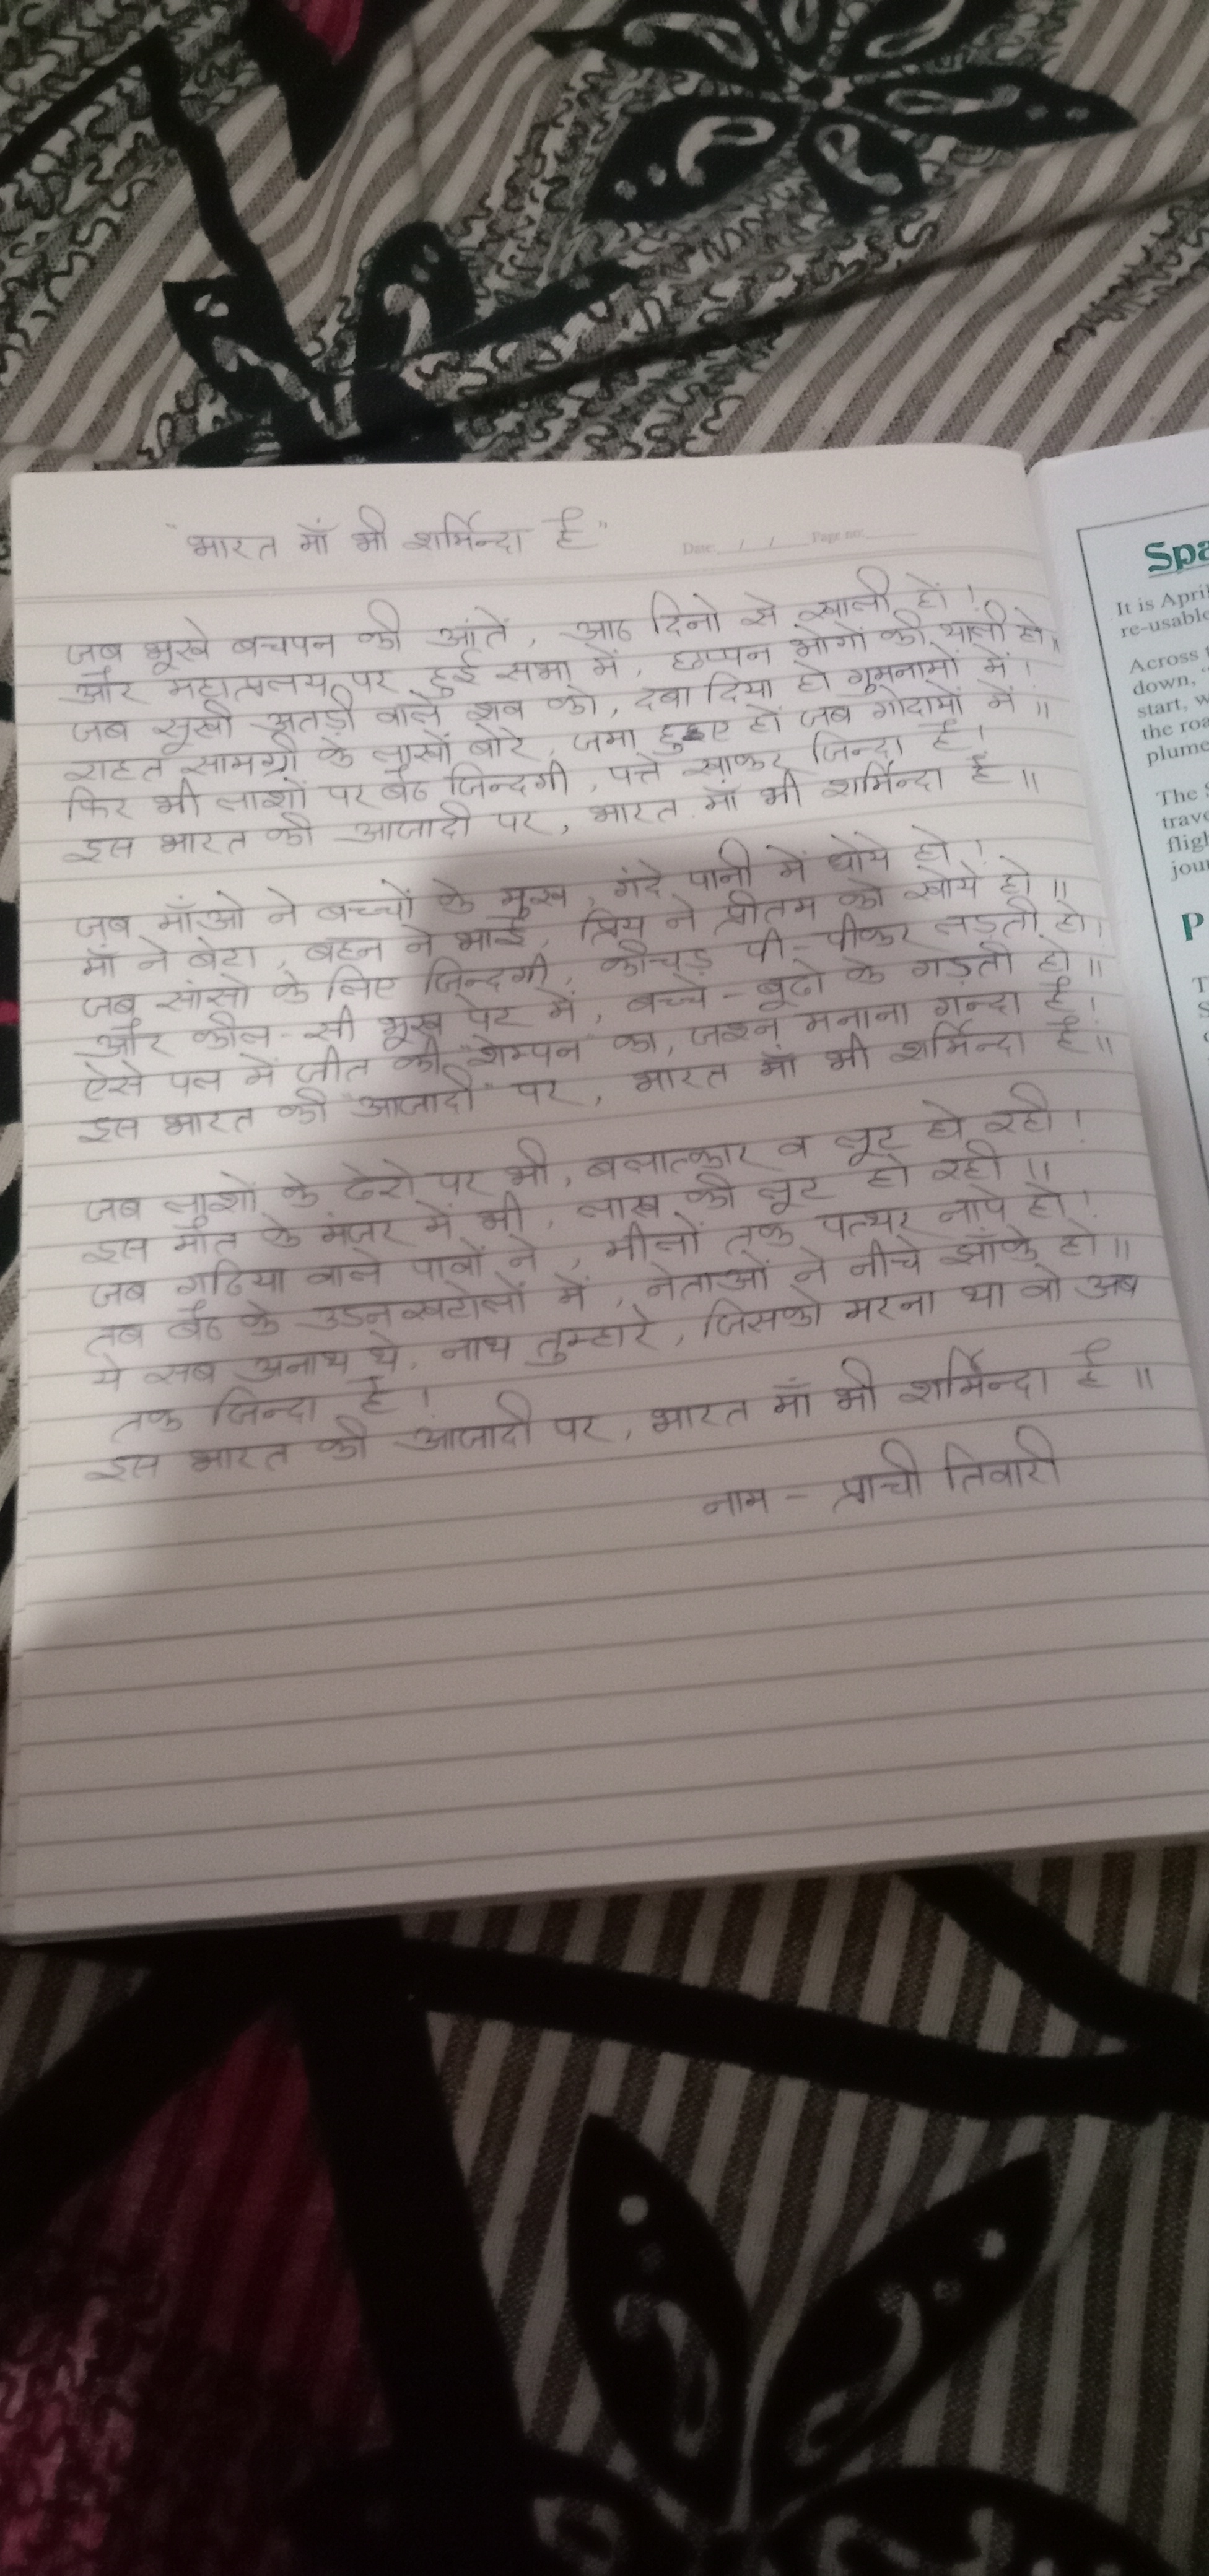 "भारत माँ भी शर्मिन्दा है"
Date: / / Page no:
जब भूखे बचपन की आंते, आठ दिनो से खाली हों !
और महाप्रलय पर हुई सभा में, छप्पन भोगों की थाली हो ॥
जब सूखी अतड़ी वाले शव को, दबा दिया हो गुमनामों में !
राहत सामग्री के लाखों बोरे, जमा हुए हों जब गोदामों में ॥
फिर भी लाशों पर बैठ जिन्दगी, पत्ते खाकर जिन्दा है !
इस भारत की आजादी पर, भारत माँ भी शर्मिन्दा है ॥
जब माँओ ने बच्चों के मुख, गंदे पानी में धोये हो !
माँ ने बेटा, बहन ने भाई, प्रिय ने प्रीतम को खोये हो ॥
जब सांसो के लिए जिन्दगी, कीचड़ पी-पीकर लड़ती हो।
और कील-सी भूख पेट में, बच्चे-बूढो के गड़ती हो ॥
ऐसे पल में जीत की "शेम्पन" का, जश्न मनाना गन्दा है !
इस भारत की "आजादी" पर, भारत माँ भी शर्मिन्दा है ॥
जब लाशों के ढेरो पर भी, बलात्कार व लूट हो रही !
इस मौत के मंजर में भी, लाख की लूट हो रही ॥
जब गठिया वाले पावों ने, मीलों तक पत्थर नापे हो !
तब बैठ के उडनखटोलों में, नेताओं ने नीचे झाँके हो ॥
ये सब अनाथ थे, नाथ तुम्हारे, जिसको मरना था वो अब
तक जिन्दा है !
इस भारत की आजादी पर, भारत माँ भी शर्मिन्दा है ॥
नाम - प्राची तिवारी
Spa
It is April
re-usable
Across
down,
start, w
the roa
plume
The S
trave
fligh
jour
P
T
S